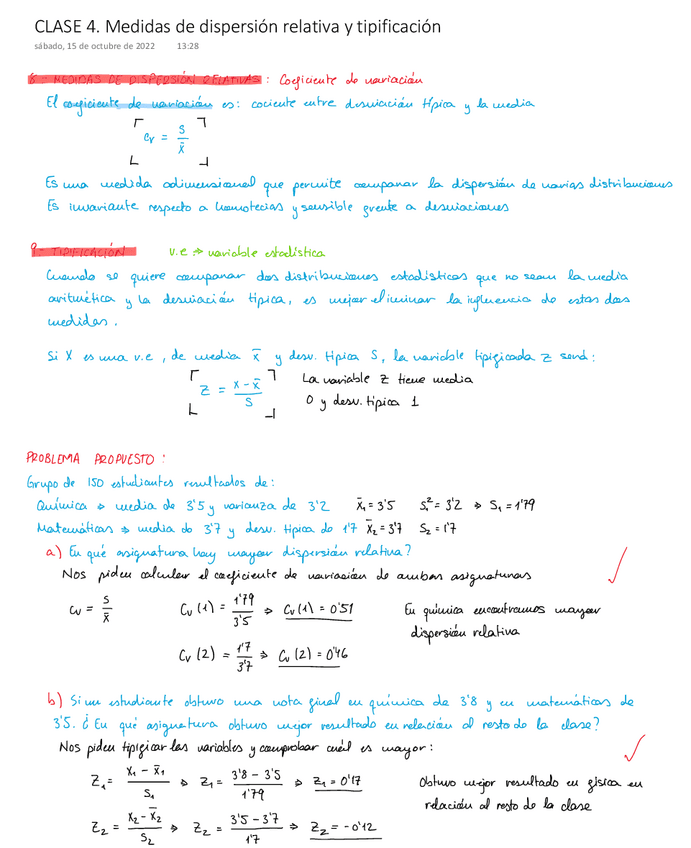 CLASE 4. Medidas de dispersión relativa y tipificación
sábado, 15 de octubre de 2022 13:28
8- MEDIDAS DE DISPERSIÓN RELATIVAS : Coeficiente de variación
El coeficiente de variación es: cociente entre desviación típica y la media
Cv = S / x̄
Es una medida adimensional que permite comparar la dispersión de varias distribuciones
Es invariante respecto a homotecias y sensible frente a desviaciones
9- TIPIFICACIÓN v.e ⇒ variable estadística
Cuando se quiere comparar dos distribuciones estadísticas que no sean la media
aritmética y la desviación típica, es mejor eliminar la influencia de estas dos
medidas.
Si X es una v.e, de media x̄ y desv. típica S, la variable tipificada Z será:
Z = (x - x̄) / S La variable Z tiene media
0 y desv. típica 1
PROBLEMA PROPUESTO :
Grupo de 150 estudiantes resultados de:
Química ⇒ media de 3'5 y varianza de 3'2 x̄₁ = 3'5 S₁² = 3'2 ⇒ S₁ = 1'79
Matemáticas ⇒ media de 3'7 y desv. típica de 1'7 x̄₂ = 3'7 S₂ = 1'7
a) En qué asignatura hay mayor dispersión relativa?
Nos piden calcular el coeficiente de variación de ambas asignaturas
Cv = S / x̄ Cv (1) = 1'79 / 3'5 ⇒ Cv (1) = 0'51 En química encontramos mayor
dispersión relativa
Cv (2) = 1'7 / 3'7 ⇒ Cv (2) = 0'46
b) Si un estudiante obtuvo una nota final en química de 3'8 y en matemáticas de
3'5. ¿En qué asignatura obtuvo mejor resultado en relación al resto de la clase?
Nos piden tipificar las variables y comprobar cuál es mayor:
Z₁ = (x₁ - x̄₁) / S₁ ⇒ Z₁ = (3'8 - 3'5) / 1'79 ⇒ Z₁ = 0'17 Obtuvo mejor resultado en física en
relación al resto de la clase
Z₂ = (x₂ - x̄₂) / S₂ ⇒ Z₂ = (3'5 - 3'7) / 1'7 ⇒ Z₂ = -0'12